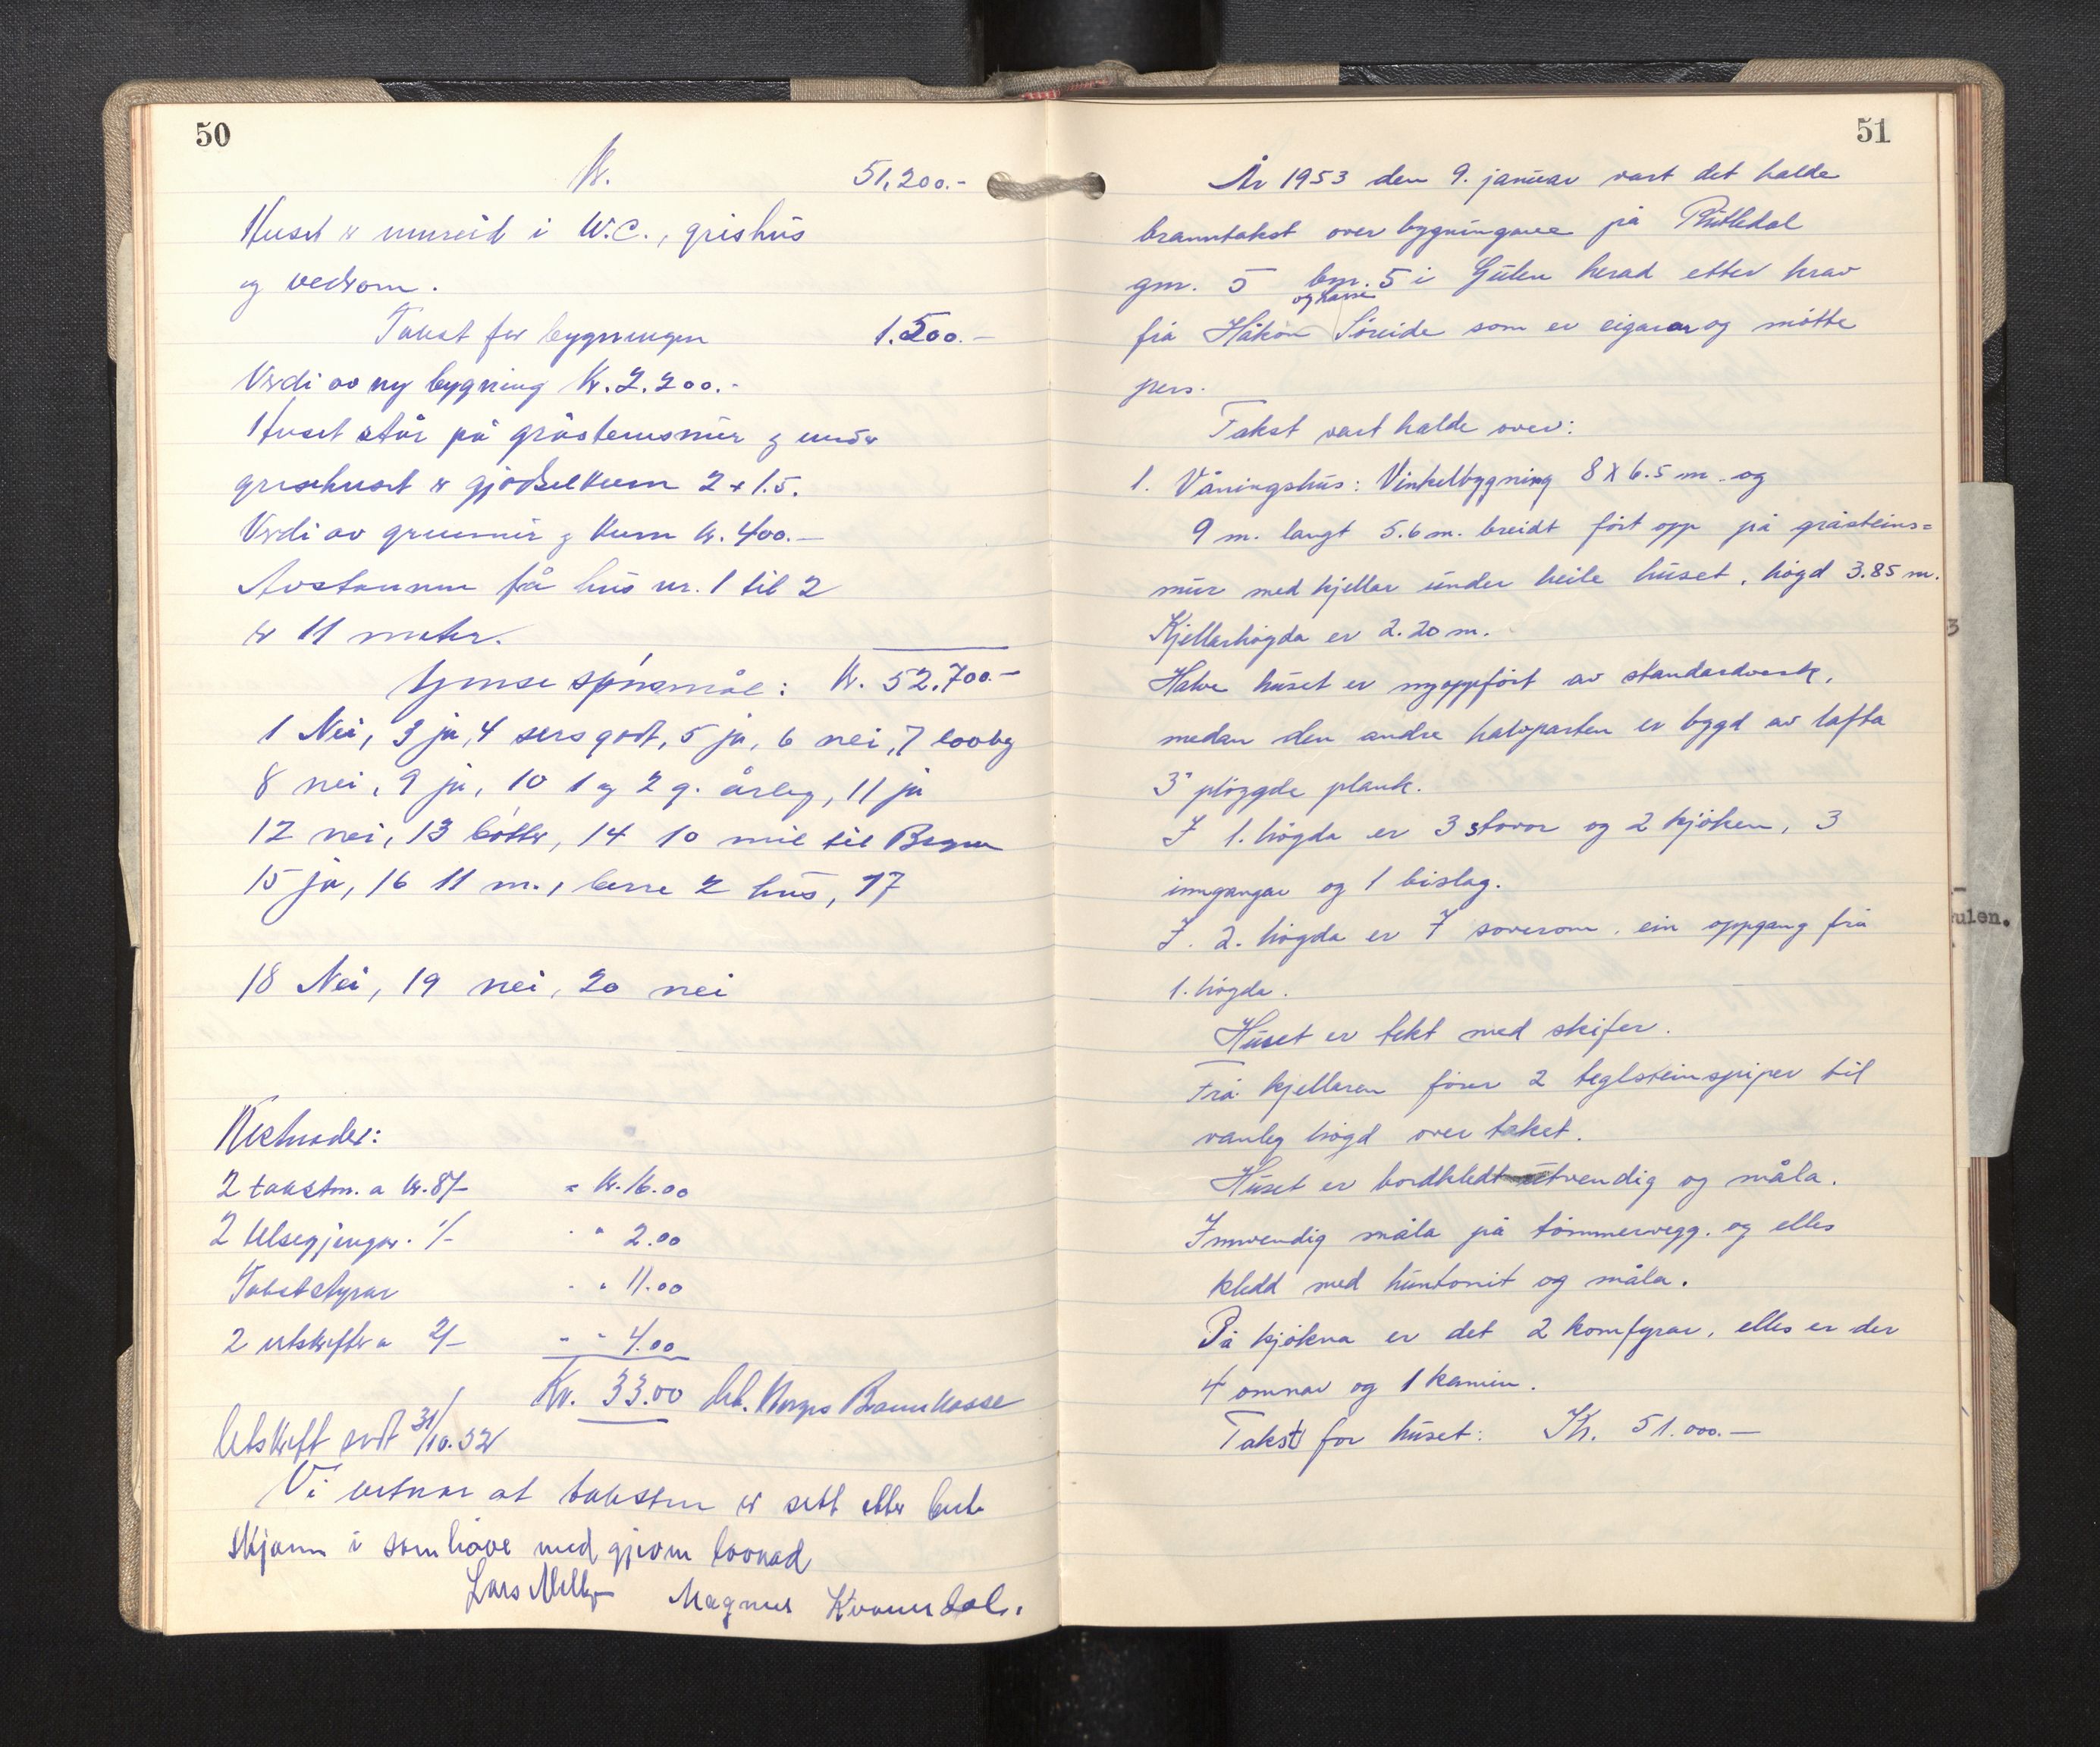 50
Kr. 51,200.-
Huset er innreid i W.C., grishus
og vedrom.
Takst for bygningen 1.500.-
Verdi av ny bygning Kr. 2.200.-
Huset står på gråsteinsmur og under
grisehuset er gjødselkum 2 x 1.5.
Verdi av grunnmur og kum kr. 400.-
Avstanden frå hus nr. 1 til 2
er 11 meter.
Ymse spørsmål: Kr. 52.700.-
1 Nei, 3 ja, 4 sers godt, 5 ja, 6 nei, 7 lovleg
8 nei, 9 ja, 10 1 og 2 g. årleg, 11 ja
12 nei, 13 bøtter, 14 10 mil til Bergen
15 ja, 16 11 m., berre 2 hus, 17
18 Nei, 19 nei, 20 nei
Kostnader:
2 takstm. a kr. 8/- = kr. 16.00
2 utsegjengar. 1/- " " 2.00
Takststyrar " " 11.00
2 utskrifter a 2/- " " 4.00
Kr. 33.00 bet. Norges Brannkasse
Utskrift sendt 31/10.52
Vi vitnar at taksten er sett etter beste
skjønn i samhøve med gjevne lovnad
Lars Magnus Kvamsdal.
51
År 1953 den 9. januar vart det halde
branntakst over bygningane på Rutledal
gnr. 5 bnr. 5 i Gulen herad etter krav
og Hanna
frå Håkon Søreide som er eigarar og møtte
pers.
Takst vart halde over:
1. Våningshus: Vinkelbygning 8 x 6.5 m. og
9 m. langt 5.6 m. breidt ført opp på gråsteins=
mur med kjellar under heile huset, høgd 3.85 m.
Kjellarhøgda er 2.20 m.
Halve huset er nyoppført av standardverk,
medan den andre halvparten er bygd av lafta
3" pløygde plank.
I 1. høgda er 3 stovor og 2 kjøken, 3
inngangar og 1 bislag.
I. 2. høgda er 7 soverom, ein oppgang frå
1. høgda.
Huset er tekt med skifer.
Frå kjellaren fører 2 teglsteinspiper til
vanleg høgd over taket.
Huset er bordkledt utvendig og måla.
Innvendig måla på tømmervegg. og elles
kledd med huntonit og måla.
På kjøkna er det 2 komfyrar, elles er der
4 omnar og 1 kamin.
Takst for huset: Kr. 51.000.-
3
ulen.